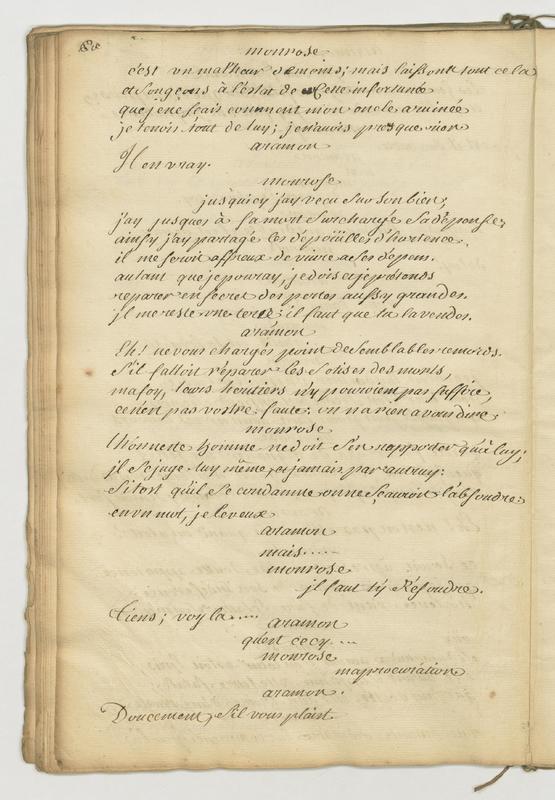 monrose
c'est un malheur demoins; mais laissons tout cela
et songeons à l'estat de cette infortunée
que je ne scais comment mon oncle a ruinée
je tenois tout de luy; je n'avois presque rien
aramon
Il en vray.
monrose
jusqu'icy j'ay vecu sur son bien;
j'ay jusques à sa mort surchargé sa dépense;
ainsy j'ay partagé les dépoüilles d'hortence.
il me seroit affreux de vivre a ses dépens.
autant que je pouray, je dois et je prétends
réparer en secret des pertes aussy grandes.
jl me reste une terre; il faut que tu la vendes.
aramon
Eh! ne vous chargés point de semblables remords.
s'il falloit réparer les sotises des morts,
ma foy, leurs héritiers n'y pouroient pas suffire,
ce n'en pas vostre faute; on n'a rien a vous dire;
monrose
l'honneste homme ne doit s'en rapporter qu'à luy;
jl se juge luy même, et jamais par autruy:
sitost qu'il se condamne on ne sçauroit l'absoudre;
en un mot, je le veux
aramon
mais.....
monrose
jl faut t'y Résoudre.
tiens; voyla.....
aramon
qu'en cecy....
monrose
ma procuration
aramon.
Doucement, s'il vous plaist.